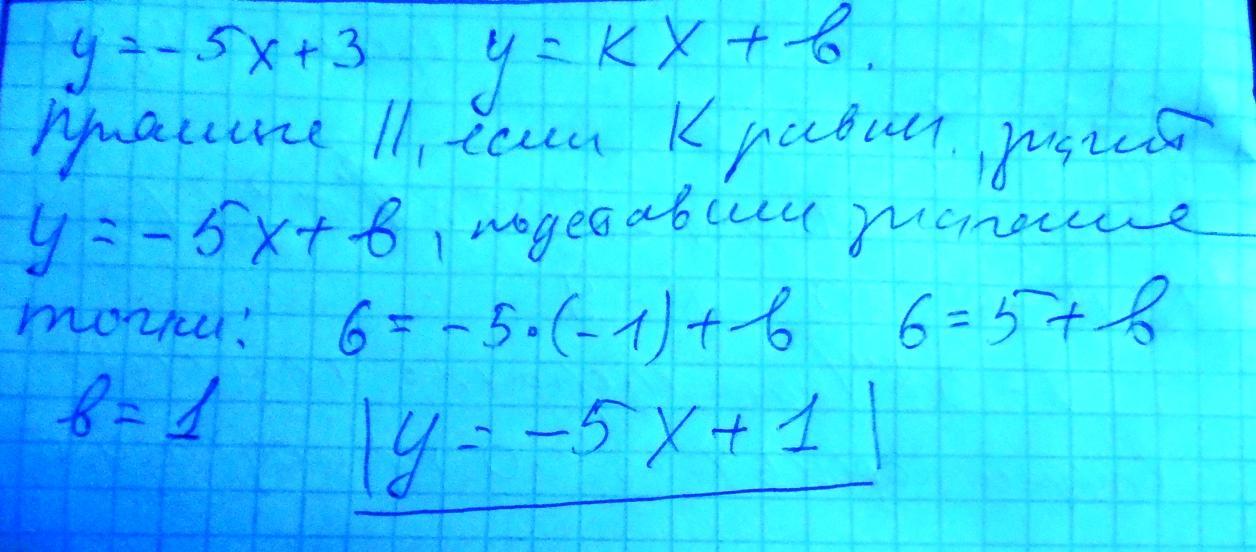 y = -5x + 3 y = кx + в.
прямые ||, если к равны, значит
y = -5x + в, подставим значение
точки: 6 = -5·(-1) + в 6 = 5 + в
в = 1 |y = -5x + 1|